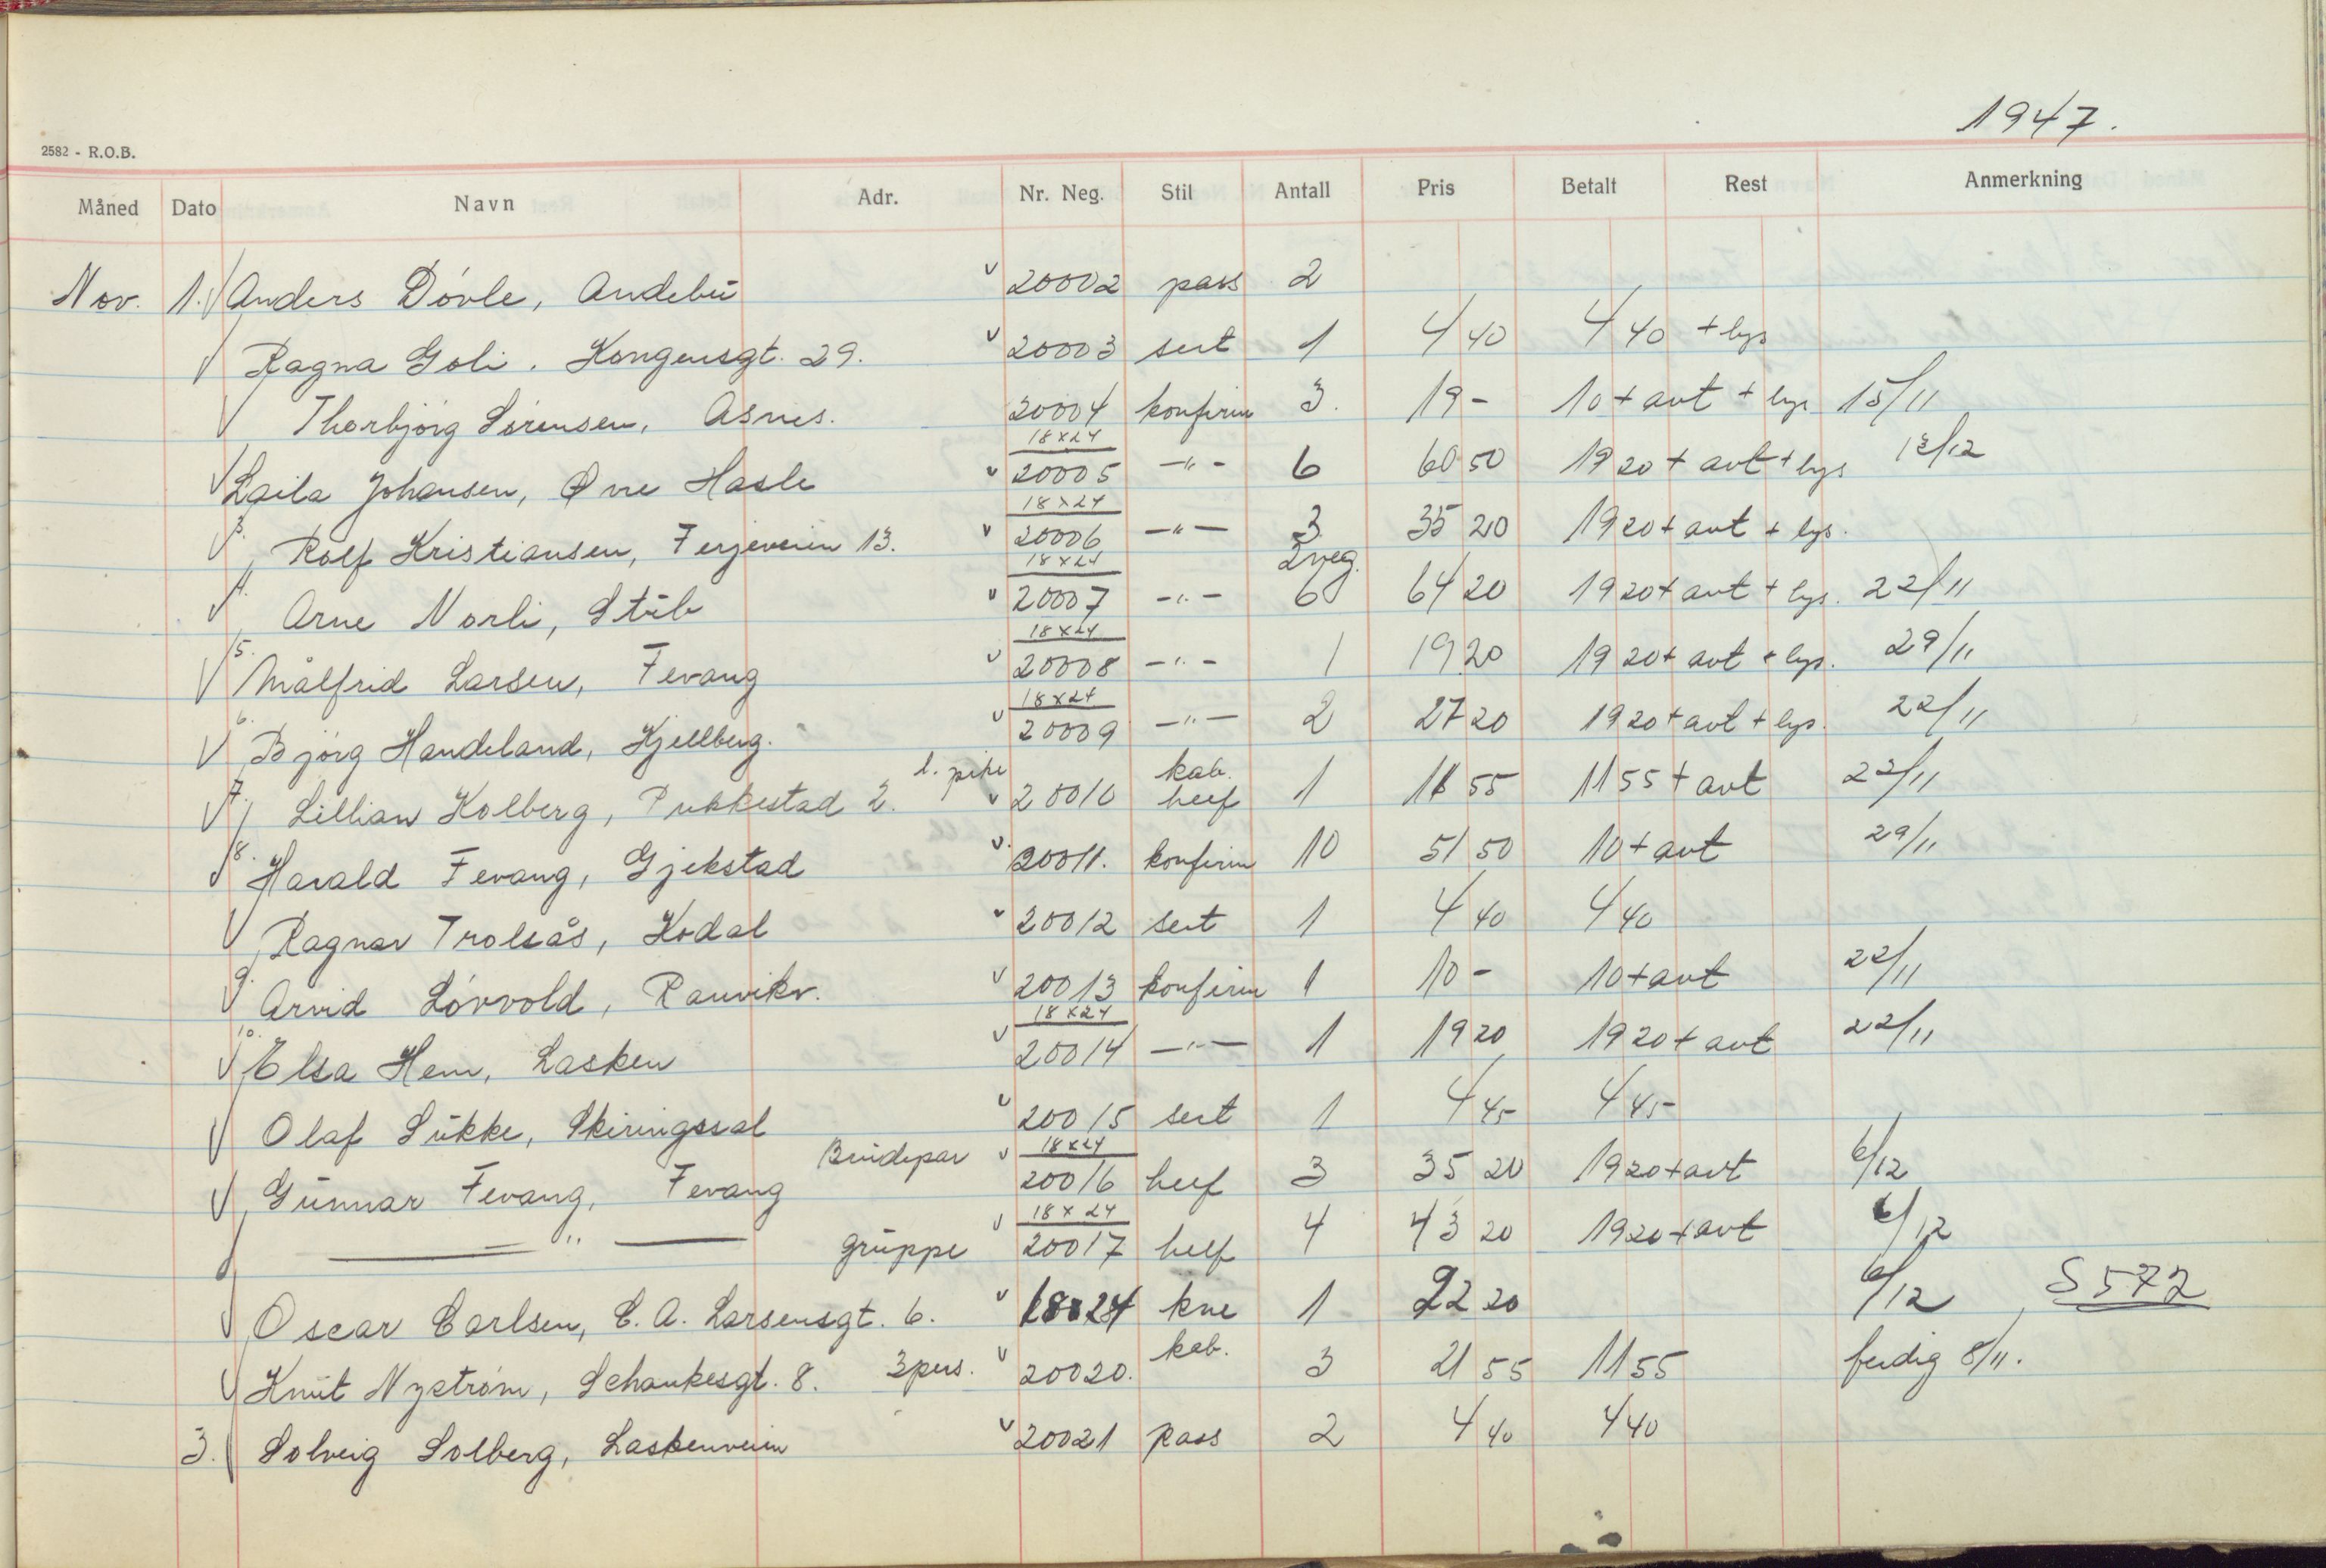 1947.
2582 - R.O.B.
Måned Dato Navn Adr. Nr. Neg. Stil Antall Pris Betalt Rest Anmerkning
Nov. 1. Anders Dövle, Andebu 20002 pass 2
Ragna Goli. Kongensgt. 29. 20003 sert 1 4 40 4 40 + lys
Thorbjörg Sörensen, Asnes. 20004 konfirm 3. 19 - 10 + avt + lys 15/11
18x24
Laila Johansen, Øvre Hasle 20005 -"- 6 60 50 19 20 + avt + lys 13/12
18x24
3. Rolf Kristiansen, Ferjeveien 13. 20006 -"- 3 35 20 19 20 + avt + lys.
18x24 2 neg.
4. Arne Norli, Stub 20007 -"- 6 64 20 19 20 + avt + lys. 22/11
18x24
5. Målfrid Larsen, Fevang 20008 -"- 1 19 20 19 20 + avt + lys. 29/11
18x24
6. Björg Handeland, Kjellberg. 20009 -"- 2 27 20 19 20 + avt + lys. 22/11
7. Lillian Kolberg, Pukkestad 2. l. pike 20010 kab. helf 1 11 55 11 55 + avt 22/11
8. Harald Fevang, Gjekstad 20011. konfirm 10 51 50 10 + avt 29/11
Ragnar Trolsås, Kodal 20012 sert 1 4 40 4 40
9. Arvid Lövvold, Ranvikv. 20013 konfirm 1 10 - 10 + avt 22/11
18x24
10. Elsa Hem, Lasken 20014 -"- 1 19 20 19 20 + avt 22/11
Olaf Sukke, Skiringssal 20015 sert 1 4 45 4 45
18x24
Gunnar Fevang, Fevang Brudepar 20016 helf 3 35 20 19 20 + avt 6/12
18x24
-"- gruppe 20017 helf 4 43 20 19 20 + avt 6/12
Oscar Carlsen, C. A. Larsensgt. 6. 18x24 kne 1 22 20 6/12 S 572
Knut Nyström, Schankesgt. 8. 3 pers. 20020. kab. 3 21 55 11 55 ferdig 8/11.
3. Solveig Solberg, Laskenveien 20021 pass 2 4 40 4 40